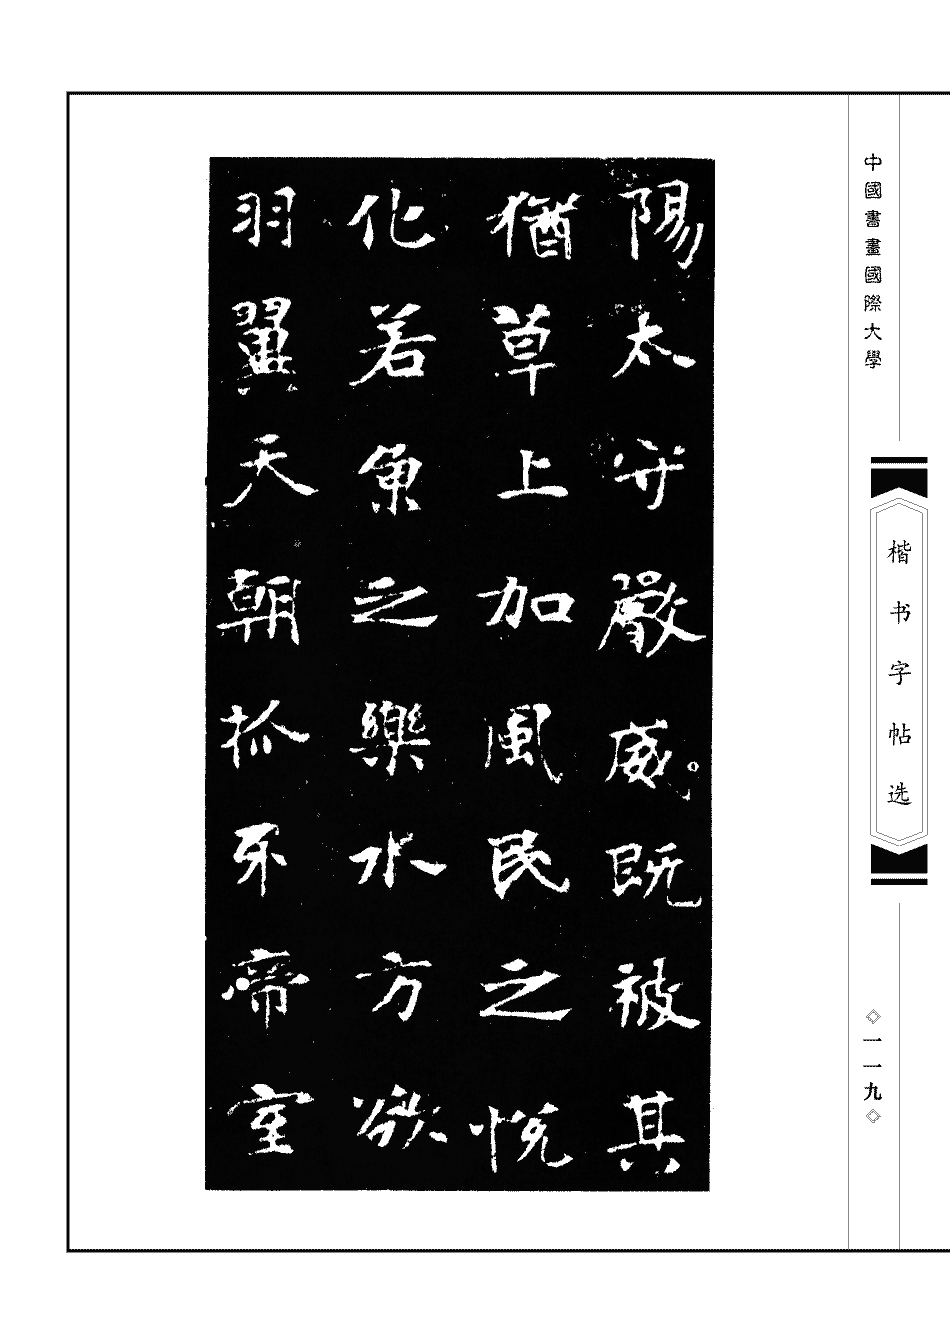 中國書畫國際大學
楷书字帖选
◇一一九◇
陽太守嚴威。既被其
猶草上加風民之悅
化若魚之樂水方欲
羽翼天朝抓牙帝室